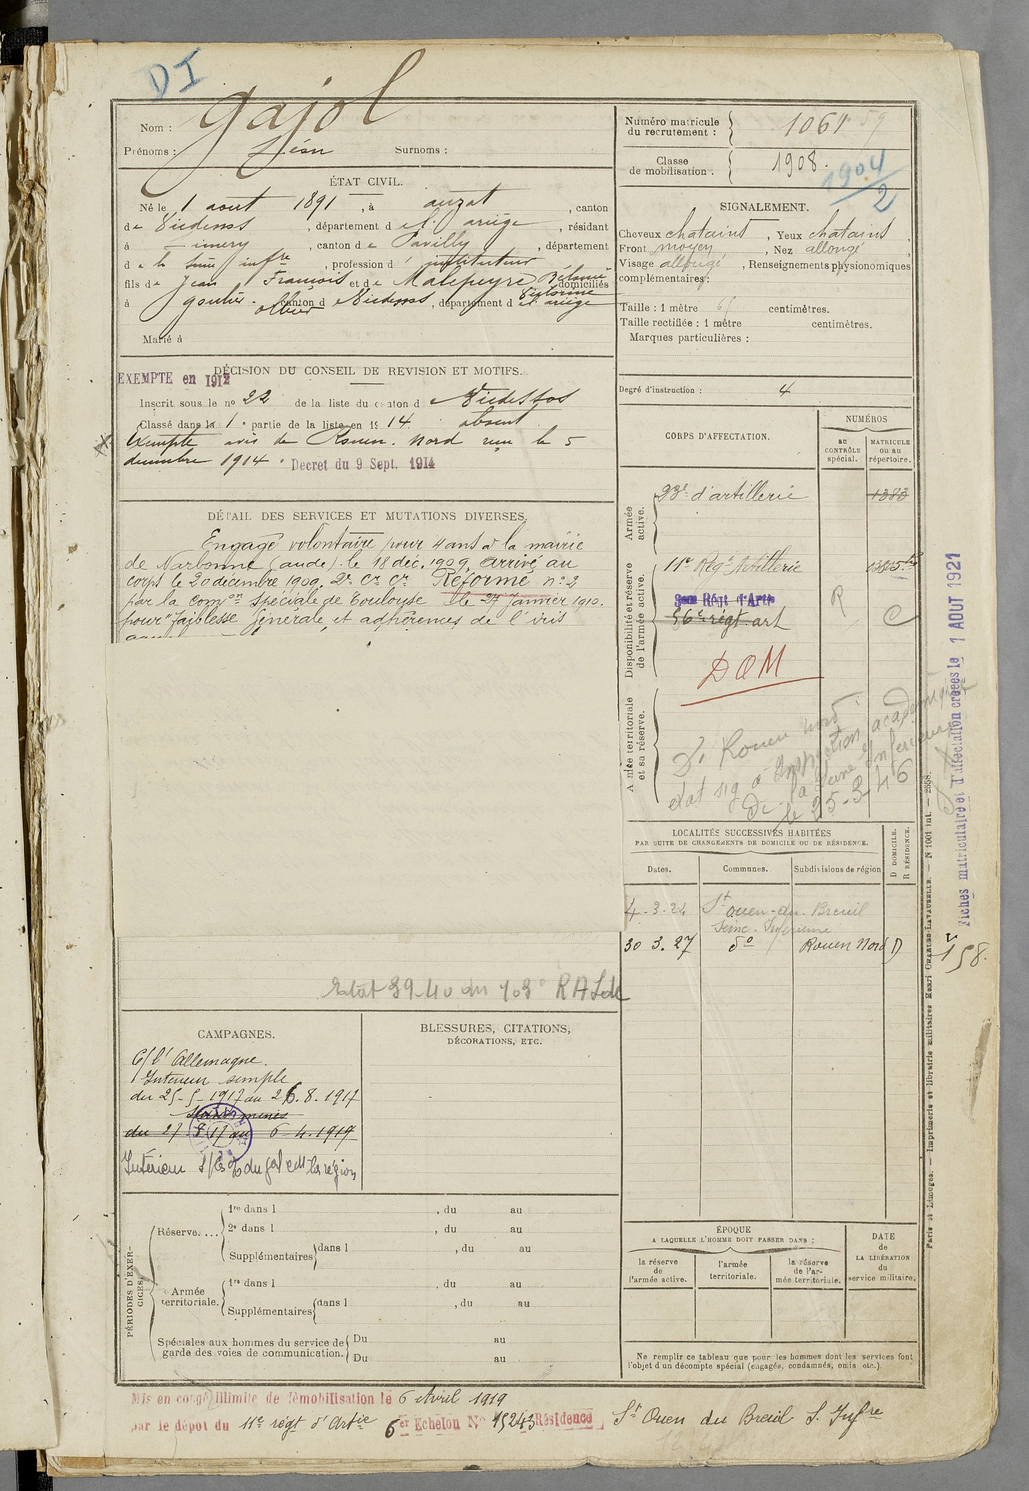 DI
Nom : Gajol
Prénoms : Léon Surnoms :
Numéro matricule du recrutement : 1061
Classe de mobilisation : 1908.
1904/2
ÉTAT CIVIL.
Né le 1 aout 1891, à auzat, canton
de Vicdessos, département de l'ariège, résidant
à Limery, canton de Pavilly, département
de la Seine infre, profession d' instituteur
fils de Jean François et de Malepeyre domiciliés
à goulier. canton de Vicdessos, département d l'ariège
Marié à
SIGNALEMENT.
Cheveux chatains, Yeux chatains,
Front moyen, Nez allongé,
Visage allongé, Renseignements physionomiques
complémentaires :
Taille : 1 mètre 65 centimètres.
Taille rectifiée : 1 mètre centimètres.
Marques particulières :
Degré d'instruction : 4
DÉCISION DU CONSEIL DE REVISION ET MOTIFS.
EXEMPTÉ en 1912
Inscrit sous le no 22 de la liste du canton de Vicdessos
Classé dans la 1e partie de la liste en 1914 absent
Exempté avis de Rouen. Nord reçu le 5
decembre 1914. Decret du 9 Sept. 1914
DÉTAIL DES SERVICES ET MUTATIONS DIVERSES.
Engagé volontaire pour 4 ans à la mairie
de Narbonne (aude). le 18 déc. 1909, arrivé au
corps le 20 décembre 1909. 2e Cr Cr Réformé no 2
par la comon Spéciale de Toulouse le 27 Janvier 1910.
pour "faiblesse générale, et adhérences de l'iris
Etat 39-40 du 703e RALde
CORPS D'AFFECTATION.
NUMÉROS
au CONTRÔLE spécial.
MATRICULE ou au répertoire.
Armée active.
23e d'artillerie 1383
Disponibilité et réserve de l'armée active.
11e Régt Artillerie
Régt d'Artie
56e régt art
R C
DOM
Armée territoriale et sa réserve.
S. Rouen nord
état sig à Inspection académique
de la Seine Inférieure
le 25-3-46
Fiches matriculaire et d'affectation créées le 1 AOUT 1921
158.
LOCALITÉS SUCCESSIVES HABITÉES
PAR SUITE DE CHANGEMENTS DE DOMICILE OU DE RÉSIDENCE.
Dates. Communes. Subdivisions de région
D DOMICILE.
R RÉSIDENCE.
4-3-24 St ouen-du-Breuil
Seine-Inférieure
30 3.27 do Rouen Nord D
CAMPAGNES.
C/ l'Allemagne.
Intérieur simple
du 25-5-1917 au 26.8.1917
du 27 8 17 au 6-4-1919
BLESSURES, CITATIONS,
DÉCORATIONS, ETC.
PÉRIODES D'EXERCICES.
Réserve....
1re dans l , du au
2e dans l , du au
Supplémentaires dans l , du au
Armée territoriale.
1re dans l , du au
Supplémentaires dans l , du au
Spéciales aux hommes du service de garde des voies de communication.
Du au
Du au
ÉPOQUE
A LAQUELLE L'HOMME DOIT PASSER DANS :
la réserve de l'armée active.
l'armée territoriale.
la réserve de l'armée territoriale.
DATE de LA LIBÉRATION du service militaire.
Ne remplir ce tableau que pour les hommes dont les services font
l'objet d'un décompte spécial (engagés, condamnés, omis etc.).
Paris et Limoges. — Imprimerie et librairie militaires Henri CHARLES-LAVAUZELLE. — N 1001 int. — 2558.
Mis en congé illimité de démobilisation le 6 Avril 1919
par le dépôt du 11e régt d'Artie 6er Echelon No 15243 Résidence St Ouen du Breuil S. Infre